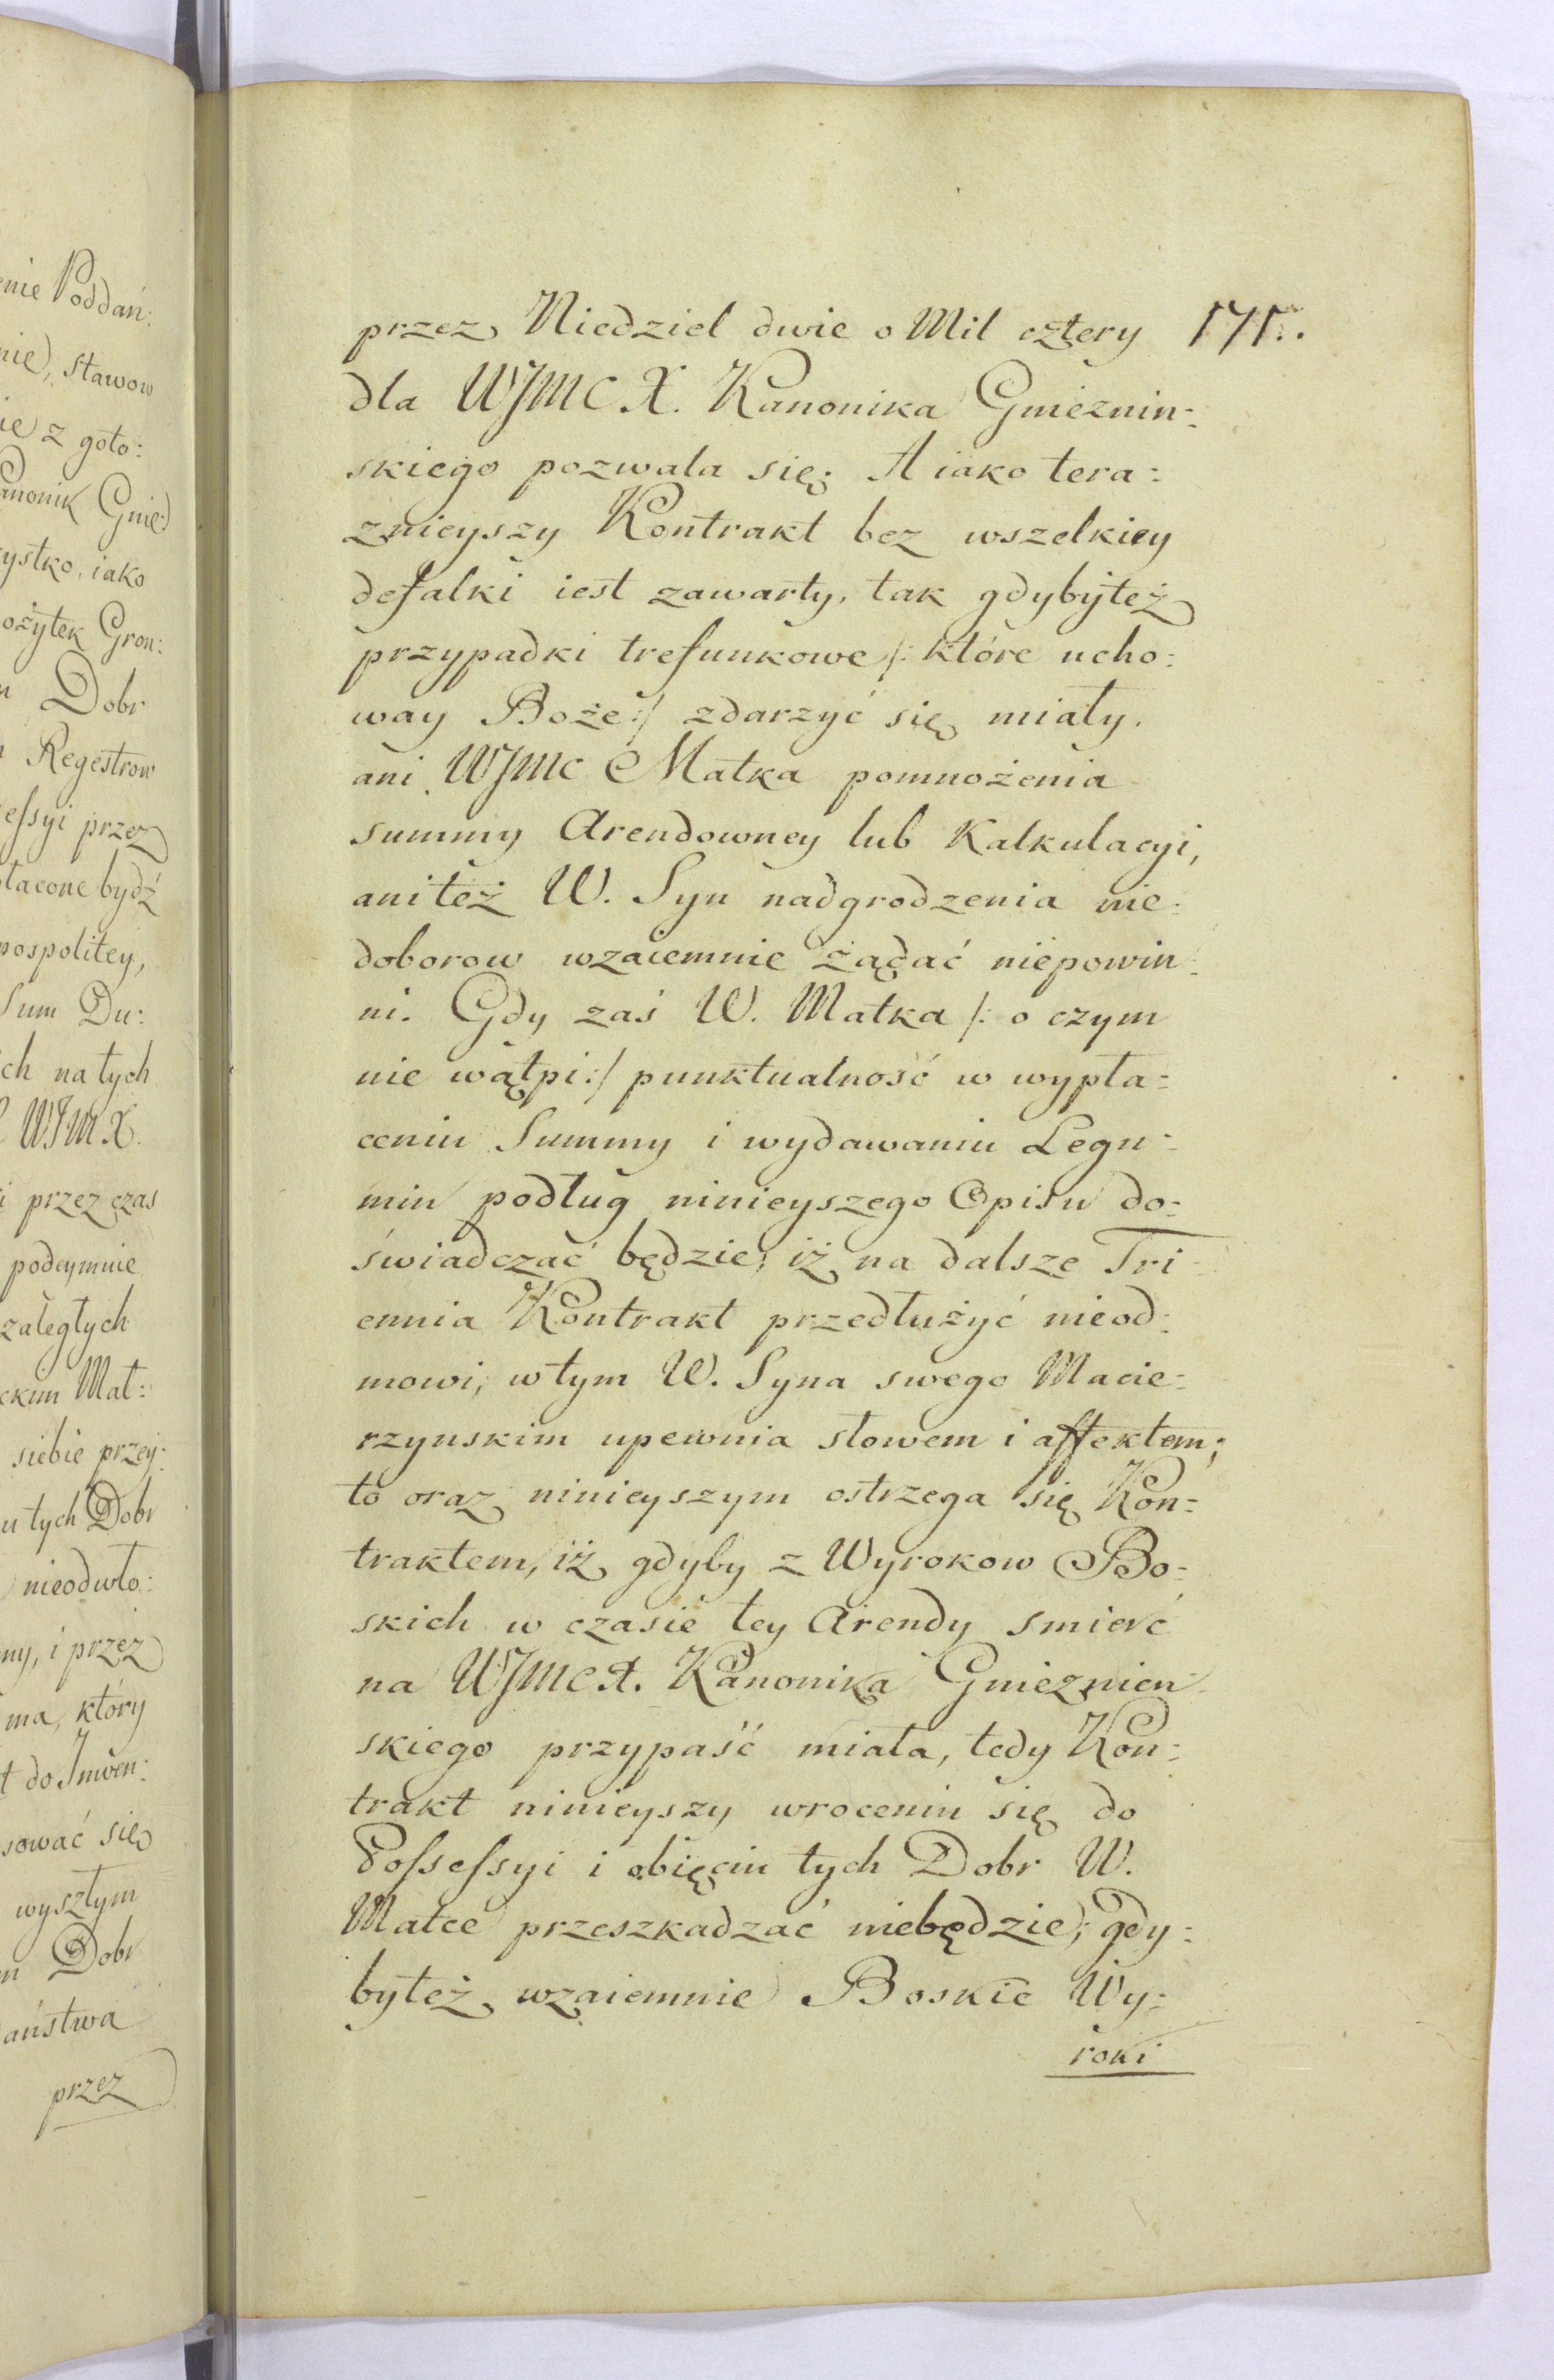 enie Poddań:
nie, stawow
ie z goto:
anonik Gnie
ystko, iako
ożytek Gron:
Dobr
Regestrow
eſsyi przez
płacone bydź
pospolitey,
Sum Du:
ch na tych
WJMX.
i przez czas
podeymuie
zaległych
ckim Mat:
siebie przey:
u tych Dobr
nieodwło:
ny, i przez
ma, który
t do Jnwen:
sować się
wyszłym
m Dobr
aństwa
przez
przez Niedziel dwie o Mil cztery 171.
dla WJMC X. Kanonika Gnieznin:
skiego pozwala się. A iako tera:
znieyszy Kontrakt bez wszelkiey
defalki iest zawarty, tak gdybyteż
przypadki trefunkowe /: które ucho:
way Boże :/ zdarzyć się miały.
ani WJMC Matka pomnożenia
summy Arendowney lub Kalkulacyi,
ani też W. Syn nadgrodzenia nie:
doborow wzaiemnie żądać niepowin:
ni. Gdy zaś W. Matka /: o czym
nie wątpi :/ punktualność w wypła:
ceniu Summy i wydawaniu Legu:
min podług ninieyszego Opisu do:
świadczać będzie; iż na dalsze Tri:
ennia Kontrakt przedłużyć nieod:
mowi, w tym W. Syna swego Macie:
rzynskim upewnia słowem i affektem;
to oraz ninieyszym ostrzega się Kon:
traktem, iż gdyby z Wyrokow Bo:
skich w czasie tey Arendy smierć
na WJMCX. Kanonika Gnieznien:
skiego przypaść miała, tedy Kon:
trakt ninieyszy wroceniu się do
Poſseſsyi i obięciu tych Dobr W.
Matce przeszkadzać niebędzie; gdy:
byteż wzaiemnie Boskie Wy:
roki